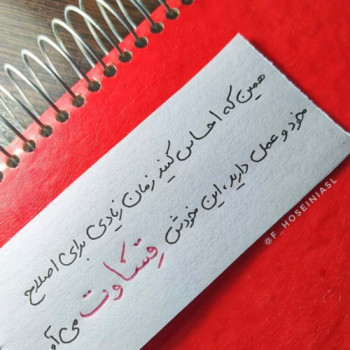 همین که احساس کنید زمان زیادی برای اصلاح
خود و عمل دارید، این خودش
قساوت می‌آ
@F_HOSEINIASL